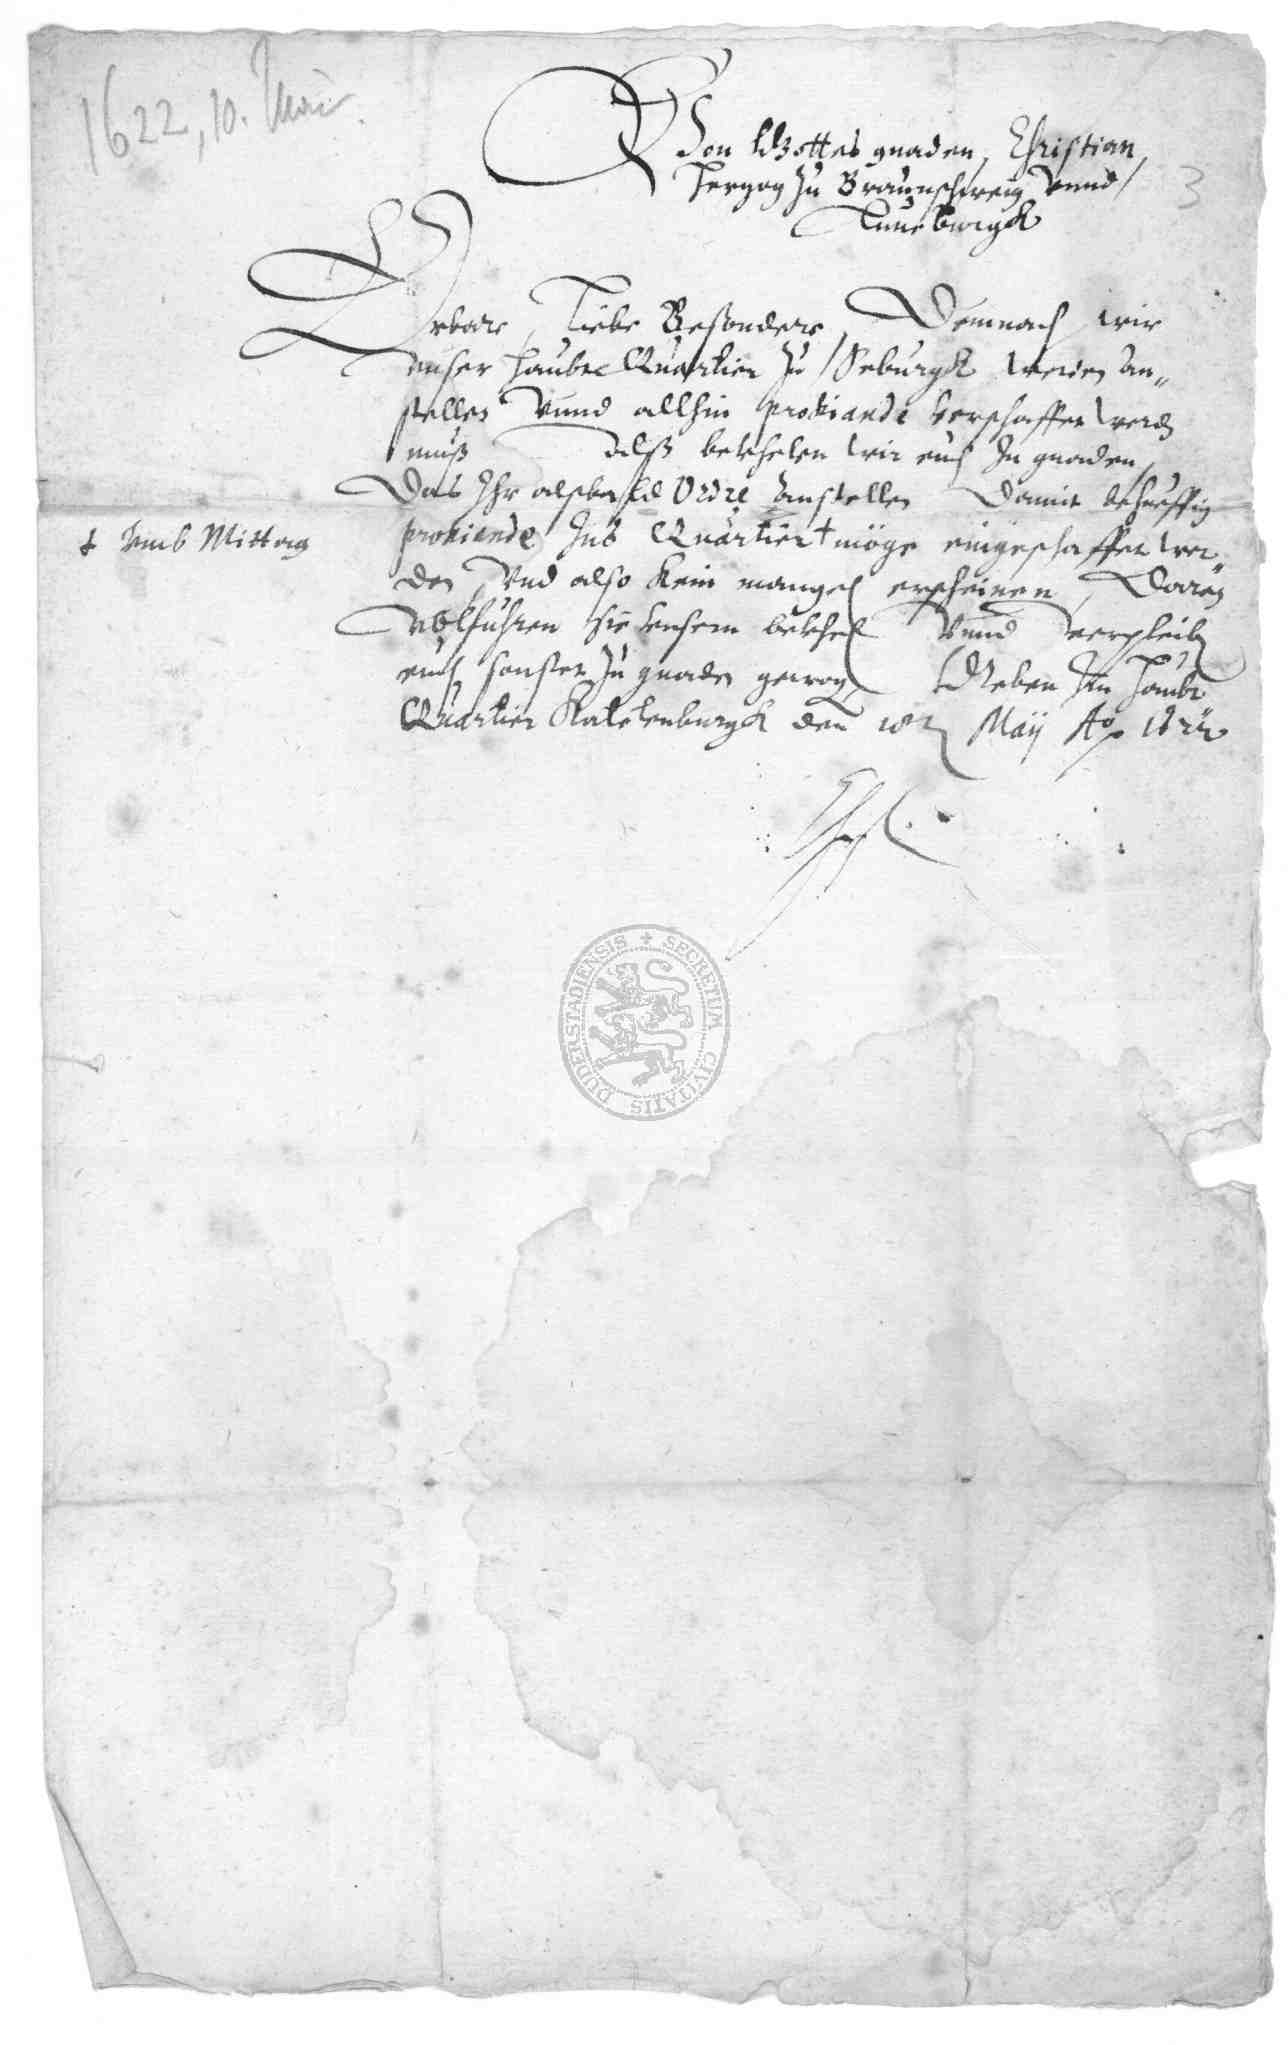 1622, 10. Mai.
Von Gottes gnaden, Christian,
Herzog zu Braunschweig vnnd
Luneburgk
3
Erbare, Liebe Besondere, Demnach wir
vnser Haubt Quartier zu Seburgk werden an„
stellen vnnd allhin proviande verschaffet werdn
muß alß bevhelen wir euch In gnaden,
Das Ihr alsbald Ordre anstellen Damit behueffig
proviande Ins Quartier † möge eingeschaffet wer„
† vmb Mittag
den, vnd also kein mangel erscheinen, Daran
volfuhren sie vnsern bevhel vnnd verpleibn
euch sonsten zu gnaden gewogen, Geben Im Haubt
Quartier Katelenburgk den May Ao 1622
SECRETUM CIVITATIS DUDERSTADIENSIS